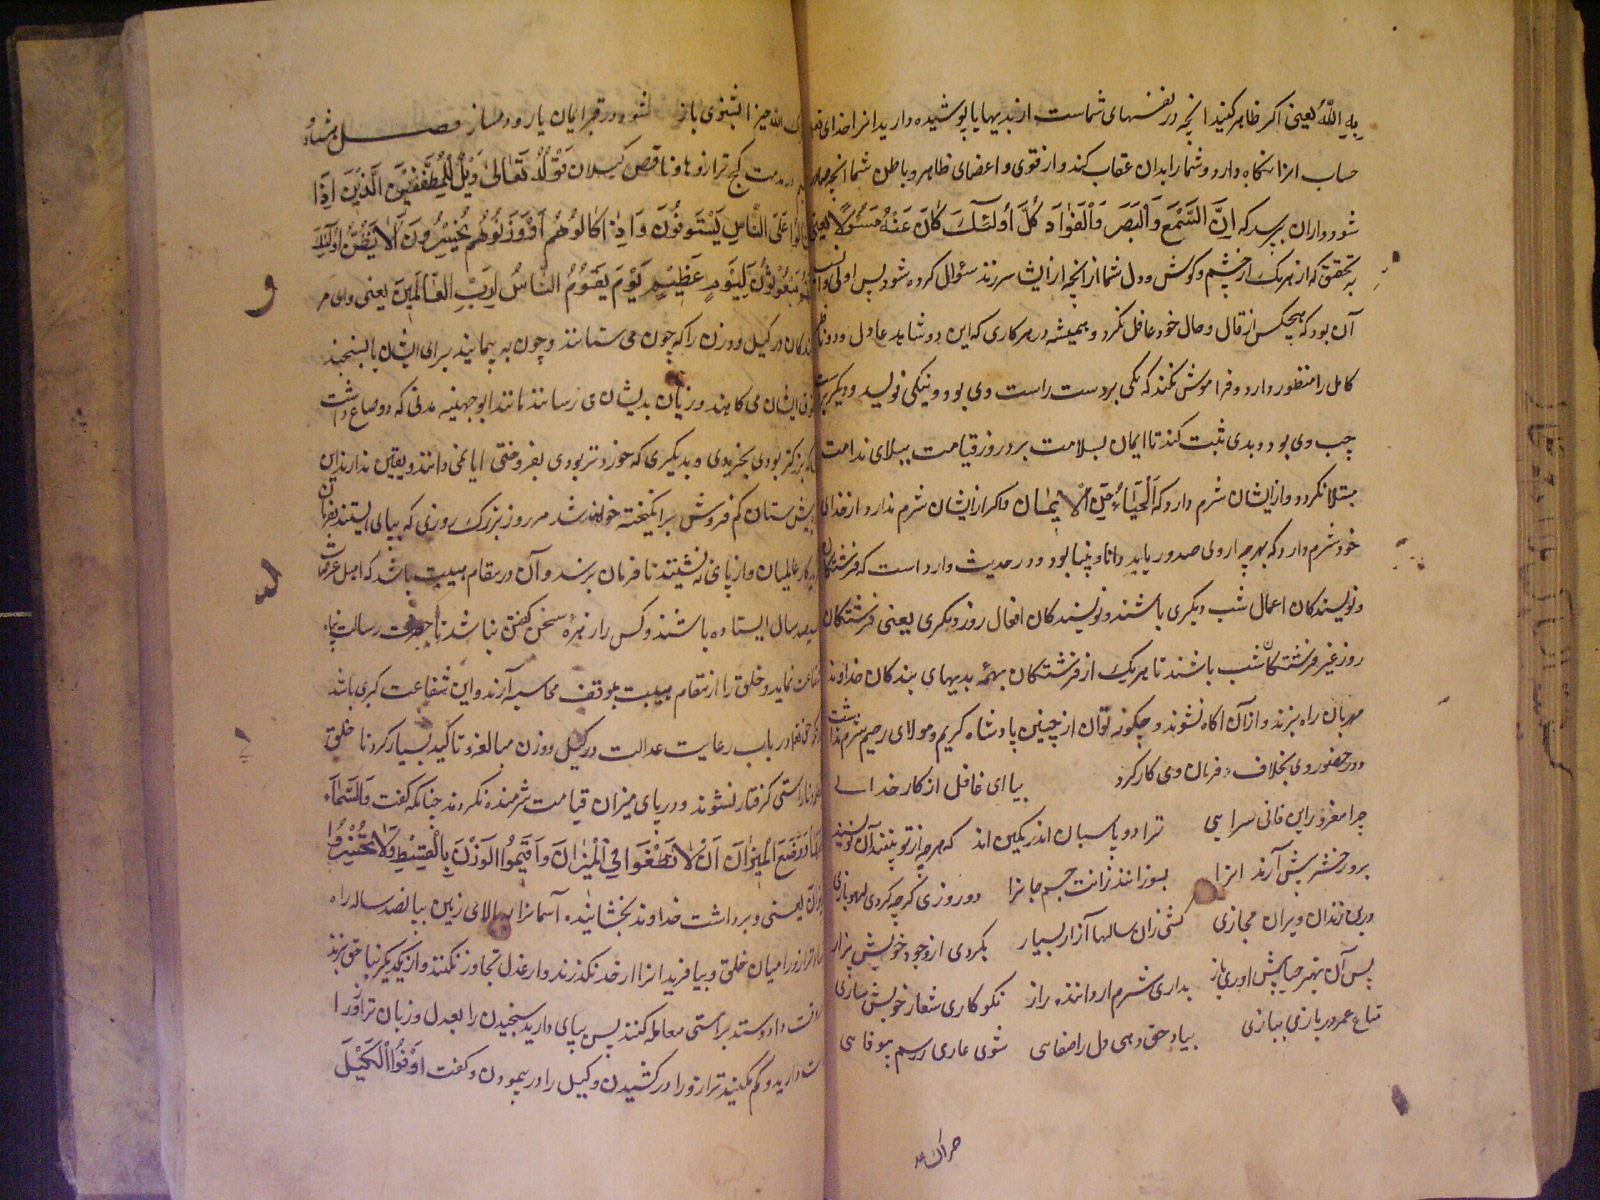 بِهِ اللّٰهُ یعنی اکر ظاهر کنید انچه در نفسهای شماست از بدیهایا پوشیده دارید انرا خدای
حساب انرا نکاه دارد و شما را بدان عقاب کند و از قوی و اعضای ظاهر و باطن شما انچه صادر
شود از ان بپرسد که اِنَّ السَّمْعَ وَالْبَصَرَ وَالْفُؤادَ کُلُّ اُولٰئِکَ کانَ عَنْهُ مَسْئُولًا یعنی
به تحقیق که از هر یک از چشم و کوش و دل شما از انچه از ایشان سر زند سئوال کرده شود پس اولی و انسب
آن بود که هیچکس از قال و حال خود غافل نکردد و همیشه در هر کاری که این دو شاهد عادل و دو ناظر
کامل را منظور دارد و فراموش نکند که یکی بر دست راست وی بود و نیکی نویسد و دیکر بر دست
چپ وی بود و بدی ثبت کند تا ایمان بسلامت برد و روز قیامت ببلای ندامت
مبتلا نکردد و از ایشان شرم دارد که اَلْحَیَاءُ مِنَ الْاِیمَان و اکر از ایشان شرم ندارد از خدای
خود شرم دارد که بهرچه از وی صدور یابد دانا و بینا بود و در حدیث وارد است که فرشتکان
و نویسندکان اعمال شب دیکری باشند و نویسندکان افعال روز دیکری یعنی فرشتکان
روز غیر فرشتکان شب باشند تا هر یک از فرشتکان بهمه بدیهای بندکان خداوند
مهربان راه نبرند و از آن آکاه نشوند و چکونه توان از چنین پادشاه کریم و مولای رحیم شرم نداشت
و در حضور وی بخلاف فرمان وی کار کرد بیا ای غافل از کار خدایی
چرا مغرور این فانی سرایی ترا دو پاسبان اندر یمین اند که هرچه از تو بینند آن نویسند
بروز حشر پیش آرند انرا بسوزانند زانت جسم و جانرا دو روزی کرچه کردی لهو و بازی
درین زندان ویران مجازی کشی زان سالها آزار بسیار بکردی از وجود خویش بیزار
پس آن بهتر حیا پیش اوری باز بداری شرم از داننده راز نکو کاری شعار خویش سازی
متاع عمر در بازی ببازی بیاد حق دهی دل را صفایی شوی عاری ز رسم بیوفایی
حران
انشنوی باز نشود و در قبر ایمان یار و دمساز فصل
در مذمت کج ترازوها و ناقص کیلان قَوْلُهُ تَعَالیٰ وَیْلٌ لِلْمُطَفِّفِینَ الَّذِینَ اِذَا
اکْتَالُوا عَلَی النَّاسِ یَسْتَوْفُونَ وَاِذَا کَالُوهُمْ اَوْ وَزَنُوهُمْ یُخْسِرُونَ اَلَا یَظُنُّ اُولٰئِکَ
اَنَّهُمْ مَبْعُوثُونَ لِیَوْمٍ عَظِیمٍ یَوْمَ یَقُومُ النَّاسُ لِرَبِّ الْعَالَمِینَ یعنی وای مر
در کیل و وزن را که چون می ستانند و چون به پیمایند برای ایشان یا بسنجند
ایشان می کاهند و زیان بدیشان می رسانند مانند ابو جهینه مدنی که دو صاع داشت
بزرکتر بودی بخریدی و بدیکری که خوردتر بودی بفروختی ایا نمی دانند و یقین ندارند این
بیش ستان کم فروش برانکیخته خواهند شد مر روز بزرک روزی که بپای ایستند بفرمان
عالمیان و از پای ننشینند تا فرمان برسد و آن در مقام هیبت باشد که اهل عرصات
سال ایستاده باشند و کس را زهرهٔ سخن کفتن نباشد تا حضرت رسالت پناه
شفاعت نماید و خلق را از مقام هیبت بموقف محاسبه آرند و این شفاعت کبری باشد
در باب رعایت عدالت در کیل و وزن مبالغه و تاکید بسیار کرد تا خلق
ناراستی کرفتار نشوند و در پای میزان قیامت شرمنده نکردند چنانکه کفت وَالسَّمَآءَ
رَفَعَهَا وَوَضَعَ الْمِیزَانَ اَنْ لَا تَطْغَوْا فِی الْمِیزَانِ وَاَقِیمُوا الْوَزْنَ بِالْقِسْطِ وَلَا تُخْسِرُوا
الْمِیزَانَ یعنی و برداشت خداوند بخشاینده آسمانرا ببالای زمین بپانصد ساله راه
ترازو را میان خلق و بیافرید انرا از حد نکذرند و از عدل تجاوز نکنند و از یکدیکر بناحق نبرند
داد و ستد براستی معامله کنند پس بپای دارید سنجیدن را بعدل و زبان ترازو را
راست دارید و کم مکنید ترازو را در کشیدن و کیل را در پیمودن و کفت اَوْفُوا الْکَیْلَ